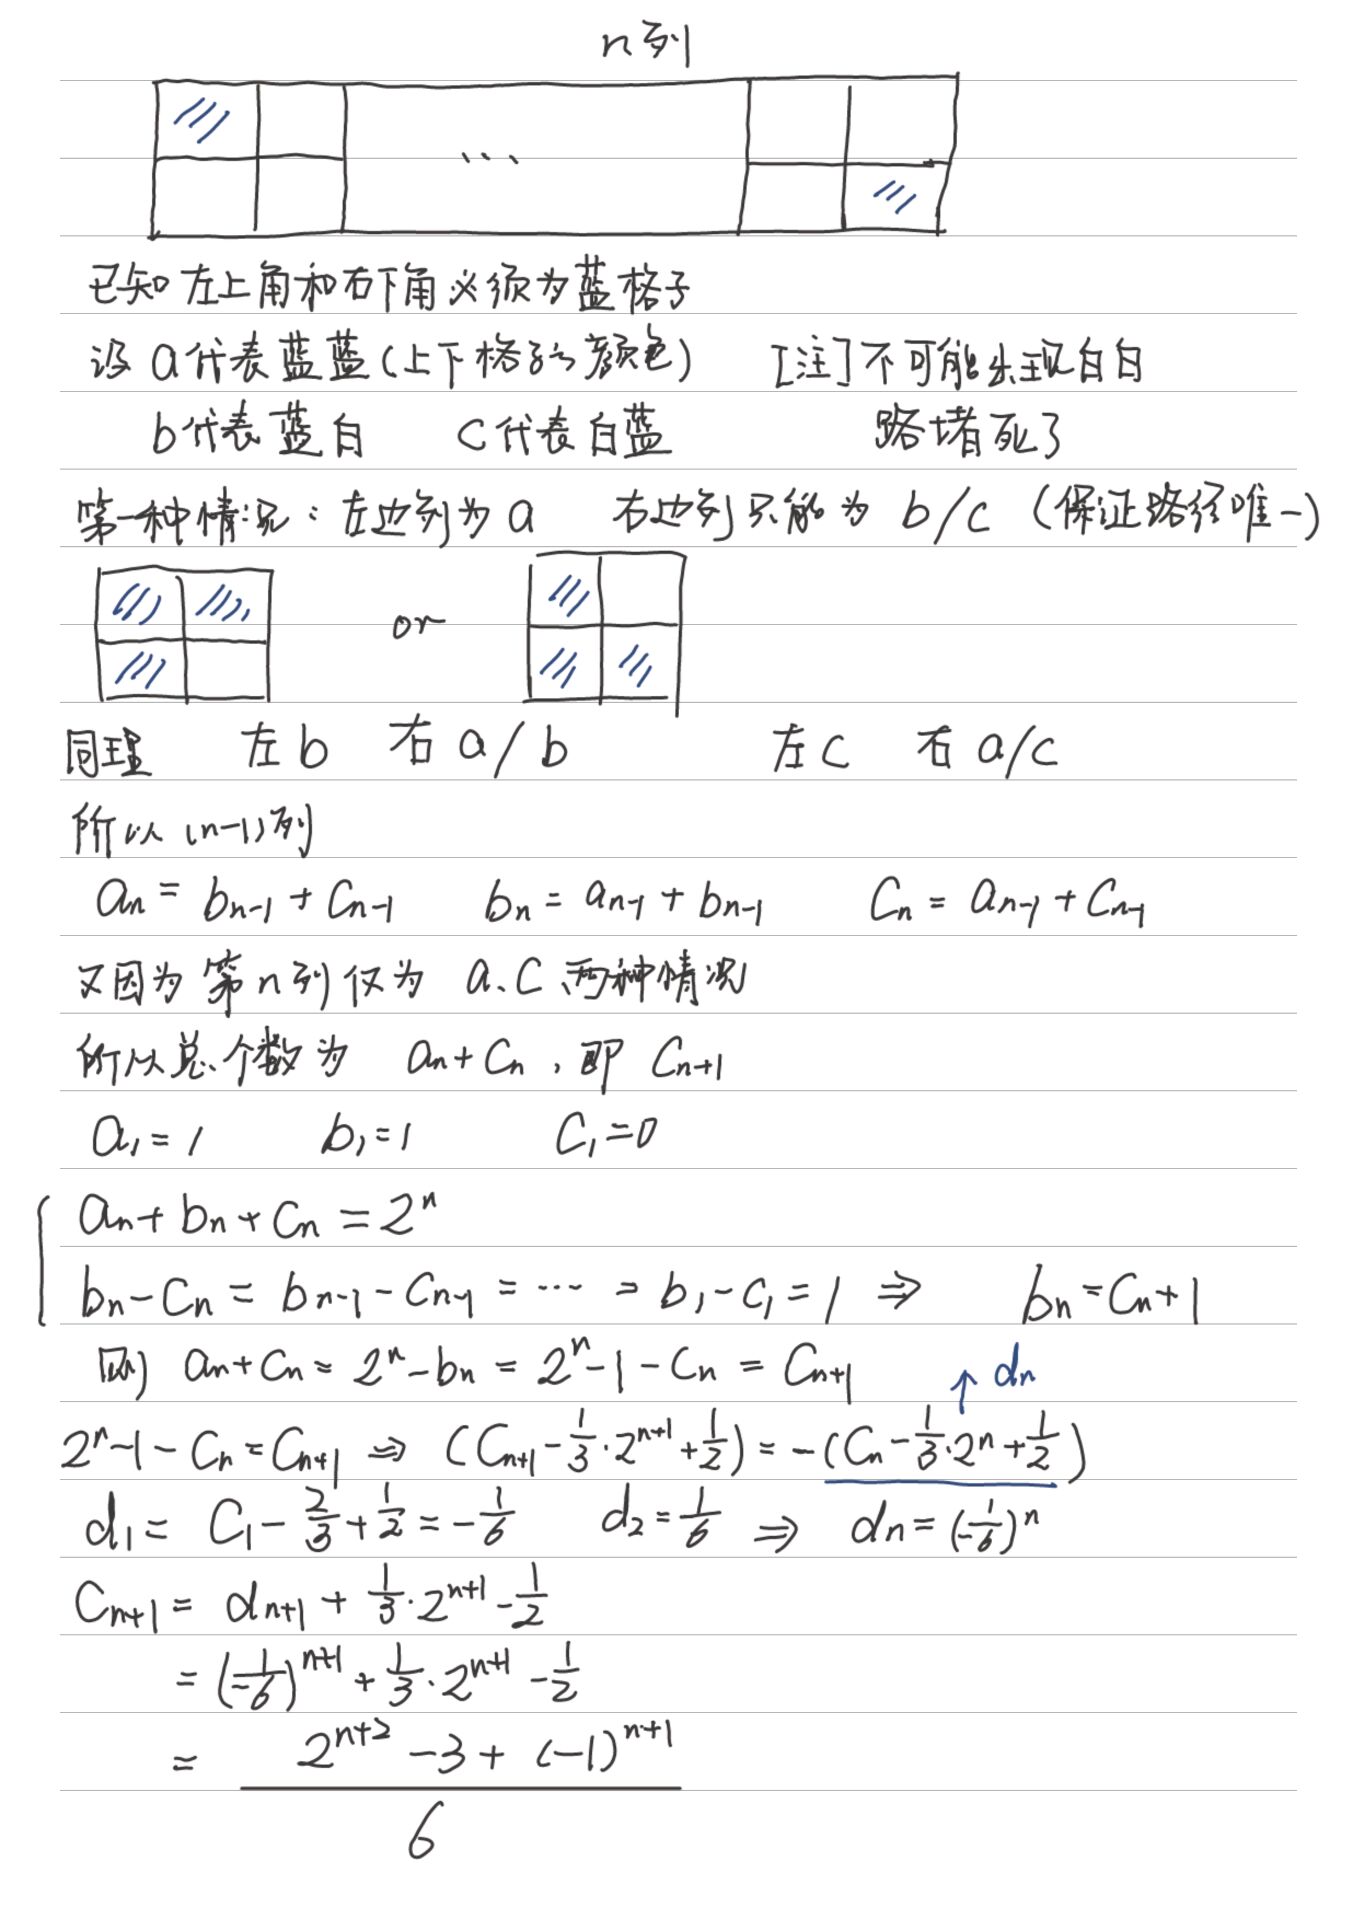 n列
...
已知左上角和右下角必须为蓝格子
设 a代表蓝蓝(上下格子的颜色) [注]不可能出现白白
b代表蓝白 c代表白蓝 路堵死了
第一种情况: 左边列为a 右边列只能为 b/c (保证路径唯一)
or
同理 左b 右 a/b 左c 右 a/c
所以(n-1)列
aₙ = bₙ₋₁ + cₙ₋₁ bₙ = aₙ₋₁ + bₙ₋₁ cₙ = aₙ₋₁ + cₙ₋₁
又因为第n列仅为 a、c 两种情况
所以总个数为 aₙ + cₙ, 即 cₙ₊₁
a₁ = 1 b₁ = 1 c₁ = 0
aₙ + bₙ + cₙ = 2ⁿ
bₙ - cₙ = bₙ₋₁ - cₙ₋₁ = ... = b₁ - c₁ = 1 ⇒ bₙ = cₙ + 1
则 aₙ + cₙ = 2ⁿ - bₙ = 2ⁿ - 1 - cₙ = cₙ₊₁ ↑ dₙ
2ⁿ - 1 - cₙ = cₙ₊₁ ⇒ (cₙ₊₁ - 1/3·2ⁿ⁺¹ + 1/2) = -(cₙ - 1/3·2ⁿ + 1/2)
d₁ = c₁ - 2/3 + 1/2 = -1/6 d₂ = 1/6 ⇒ dₙ = (-1/6)ⁿ
cₙ₊₁ = dₙ₊₁ + 1/3·2ⁿ⁺¹ - 1/2
= (-1/6)ⁿ⁺¹ + 1/3·2ⁿ⁺¹ - 1/2
= (2ⁿ⁺² - 3 + (-1)ⁿ⁺¹)/6